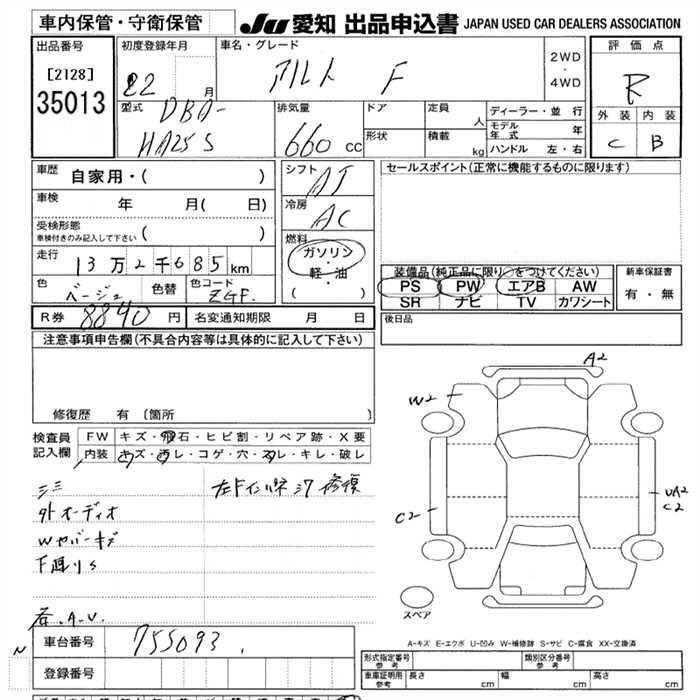 車内保管・守衛保管 JU 愛知 出品申込書 JAPAN USED CAR DEALERS ASSOCIATION
出品番号 初度登録年月 車名・グレード 評価点
[2128] 22 月 アルト F 2WD・4WD R
35013 型式 DBA- 排気量 ドア 定員 人 ディーラー・並行 外装 内装
HA25S 660 cc 形状 積載 kg モデル年式 年 C B
ハンドル 左・右
車歴 自家用・( ) シフト AT セールスポイント(正常に機能するものに限ります)
車検 年 月( 日) 冷房 AC
受検形態 ( )
車検付きのみ記入して下さい
燃料 ガソリン・軽・油 ( )
走行 13万2千685km 装備品(純正品に限り○をつけてください) 新車保証書
色 ベージュ 色替 色コード ZGF. PS PW エアB AW 有・無
SR ナビ TV カワシート
R券 8840 円 名変通知期限 月 日 後日品
注意事項申告欄(不具合内容等は具体的に記入して下さい)
A2
W2
修復歴 有 [箇所 ]
検査員記入欄 FW キズ・飛石・ヒビ割・リペア跡・X要
内装 キズ・汚レ・コゲ・穴・スレ・キレ・破レ
外オーディオ
C2
UA2
C2
Wカバーキズ
下廻りS
スペア
A-キズ E-エクボ U-凹み W-補修跡 S-サビ C-腐食 XX-交換済
車台番号 755093.
登録番号
型式指定番号 参考 類別区分番号 参考
車庫証明用 参考 長さ cm 幅 cm 高さ cm